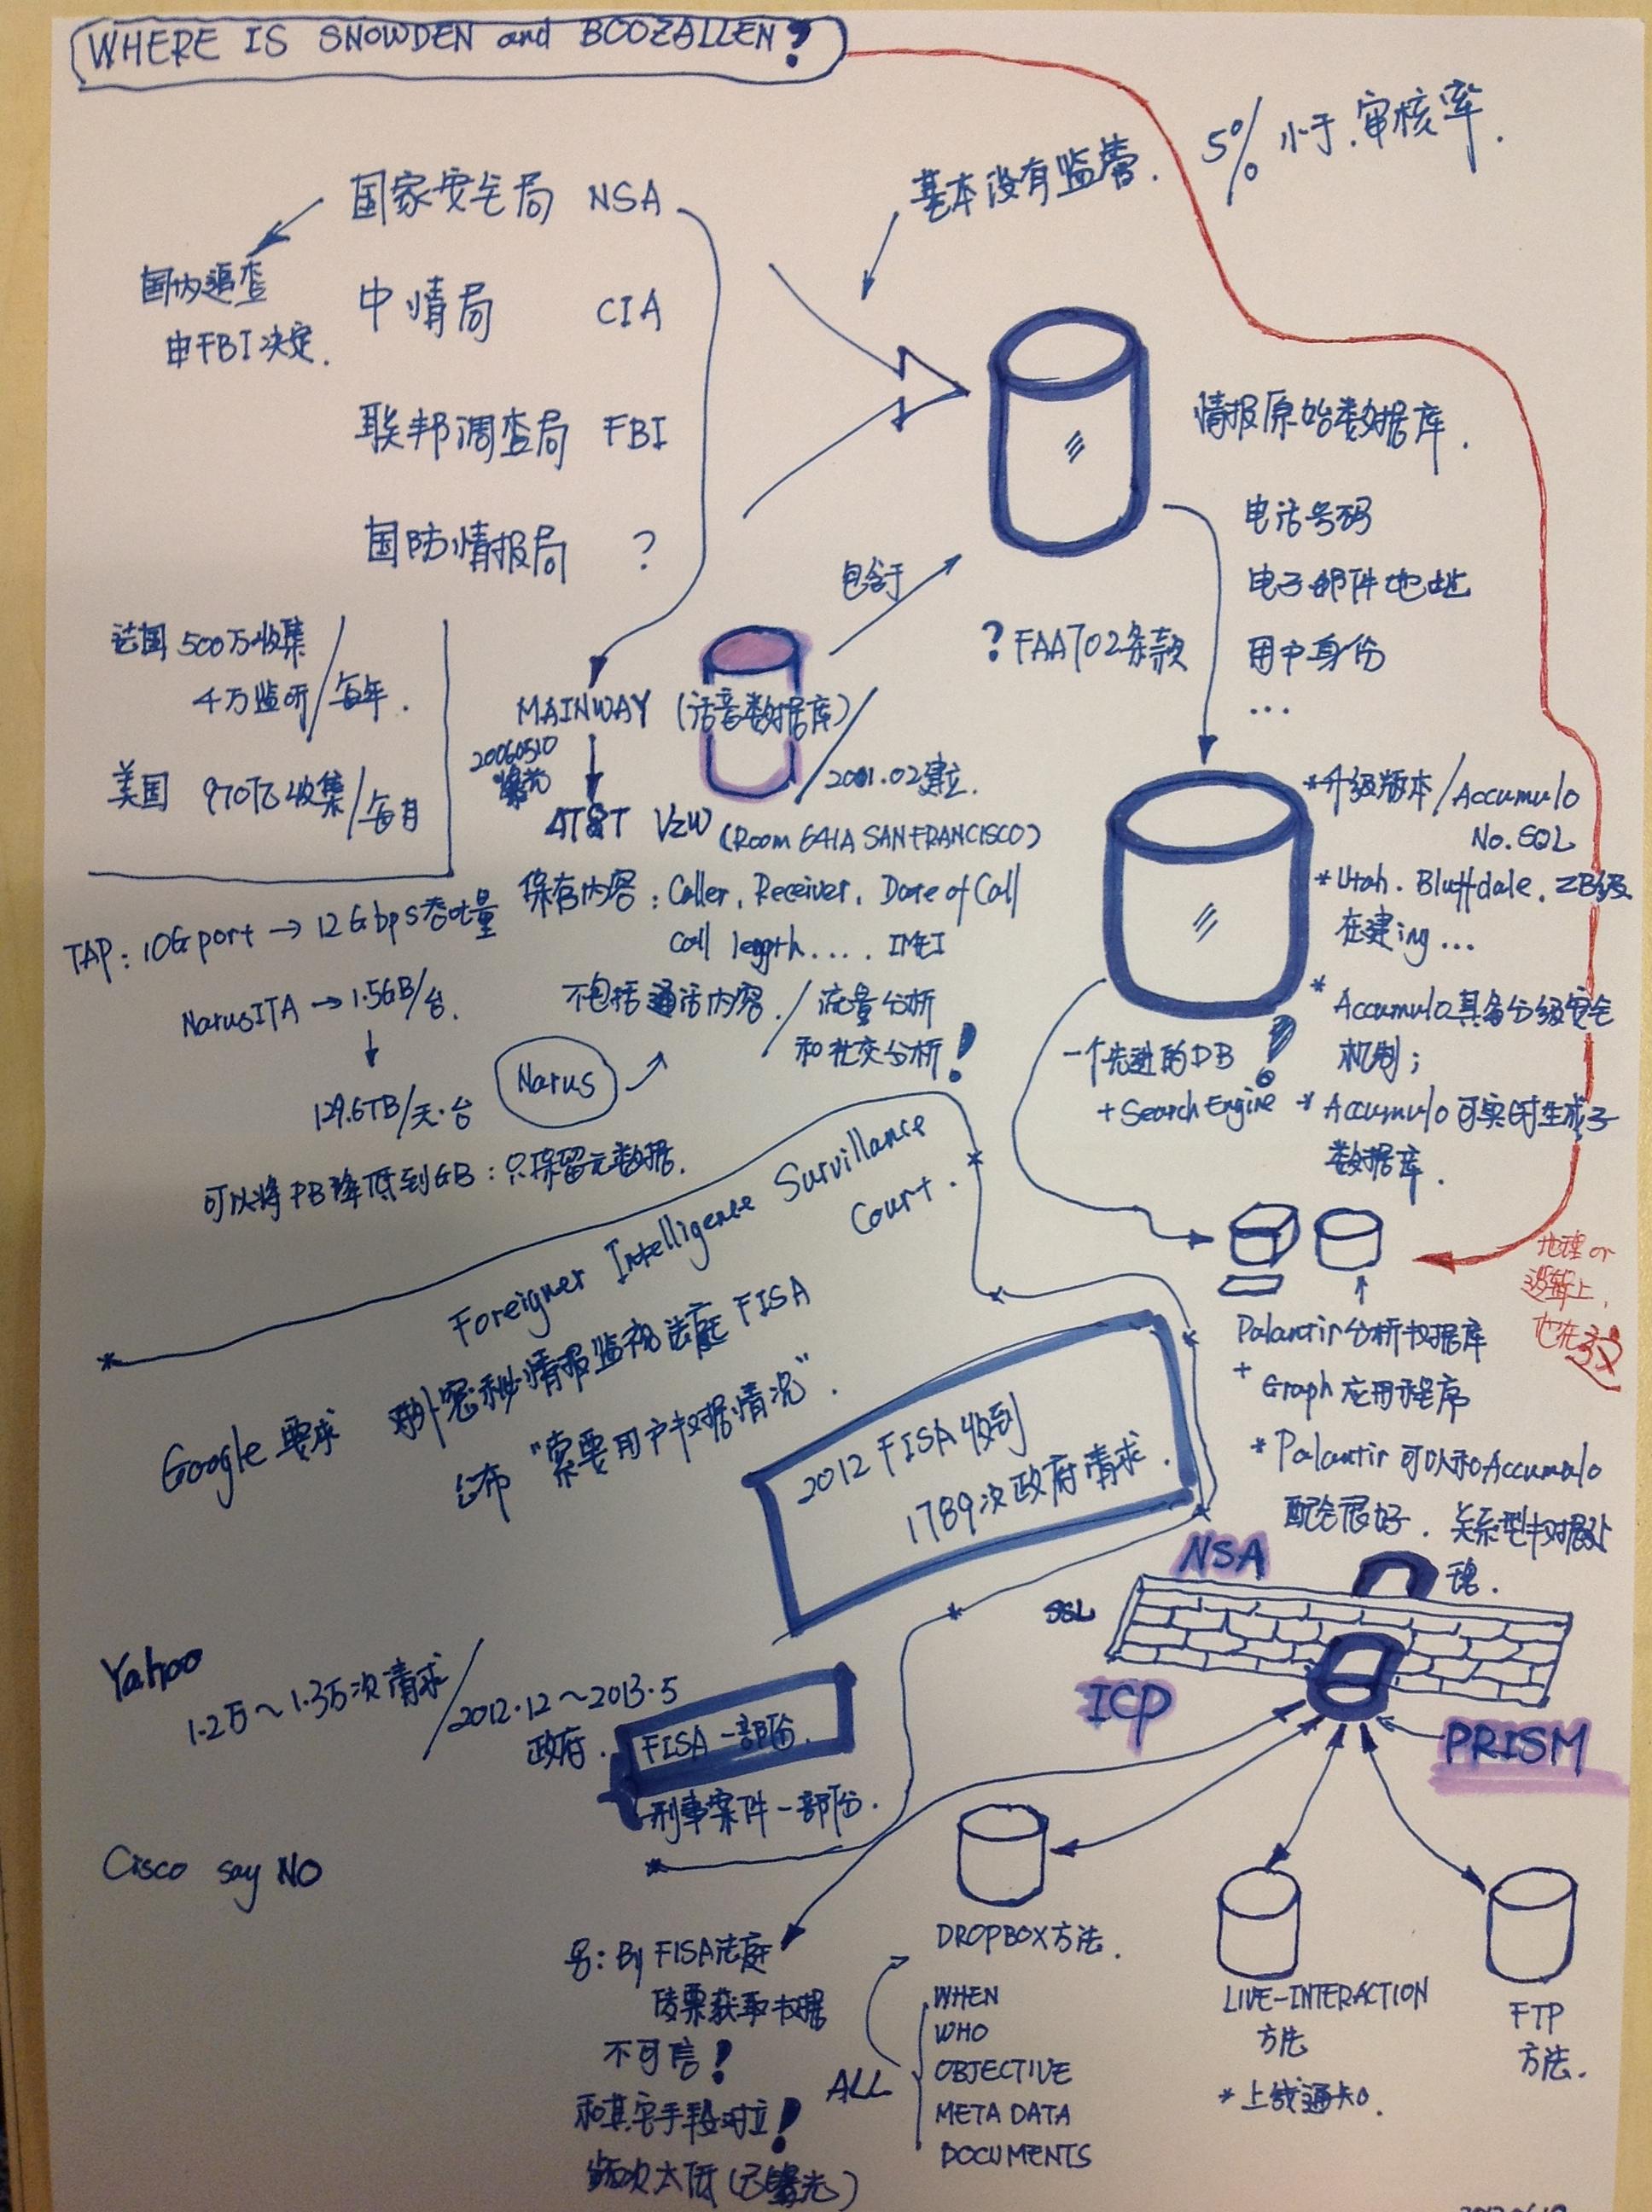 WHERE IS SNOWDEN and BOOZALLEN?
基本没有监管. 5% 小于.审核率.
国家安全局 NSA
国内追查
由FBI决定.
中情局 CIA
联邦调查局 FBI
国防情报局 ?
情报原始数据库.
电话号码
电子邮件地址
用户身份
...
包含于
? FAA702条款
法国 500万收集
4万监听/每年.
美国 970万亿收集/每月
MAINWAY (话音数据库)
2001.02建立.
20060510
曝光
AT&T VZW (Room 641A SAN FRANCISCO)
保存内容: Caller, Receiver, Date of Call
Call length.... IMEI
不包括通话内容. / 流量分析
和社交分析!
TAP: 10G port → 12Gbps吞吐量
NarusITA → 1.5GB/台.
129.6TB/天·台
Narus
可以将PB降低到GB: 只保留元数据.
*升级版本/Accumulo
No.SQL
*Utah. Bluffdale. ZB级
在建ing...
* Accumulo具备分级安全
机制;
* Accumulo可实时生成子
数据库.
一个先进的DB
+ Search Engine !
地理or
逻辑上,
也在这
Palantir分析数据库
+ Graph应用程序
* Palantir可以和Accumulo
配合很好. 关系型数据处
理.
Foreigner Intelligence Survillance
Court.
Google要求 对外秘密情报监视法庭 FISA
公布 "索要用户数据情况".
2012 FISA收到
1789次政府请求.
Yahoo
1.2万~1.3万次请求/2012.12~2013.5
政府. FISA一部份.
刑事案件一部份.
Cisco say NO
NSA
SSL
ICP
PRISM
另: By FISA法庭
传票获取数据
不可信!
和其它手段对立!
频次太低(已曝光)
DROPBOX方法.
ALL
WHEN
WHO
OBJECTIVE
META DATA
DOCUMENTS
LIVE-INTERACTION
方法
*上线通知.
FTP
方法.